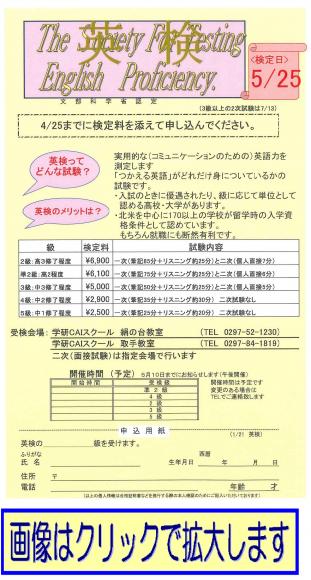 The Society For Testing
English Proficiency.
英検
文部科学省認定
<検定日>
5/25
(3級以上の2次試験は7/13)
4/25までに検定料を添えて申し込んでください。
英検って
どんな試験?
実用的な(コミュニケーションのための)英語力を
測定します
「つかえる英語」がどれだけ身についているかの
試験です。
英検のメリットは?
・入試のときに優遇されたり、級に応じて単位として
認める高校・大学があります。
・北米を中心に170以上の学校が留学時の入学資
格条件として認めています。
もちろん就職にも断然有利です。
級 検定料 試験内容
2級:高3修了程度 ¥6,900 一次(筆記85分+リスニング約25分)と二次(個人面接7分)
準2級:高2程度 ¥6,100 一次(筆記75分+リスニング約25分)と二次(個人面接6分)
3級:中3修了程度 ¥5,000 一次(筆記50分+リスニング約25分)と二次(個人面接5分)
4級:中2修了程度 ¥2,900 一次(筆記35分+リスニング約30分) 二次試験なし
5級:中1修了程度 ¥2,500 一次(筆記25分+リスニング約20分) 二次試験なし
受検会場: 学研CAIスクール 絹の台教室 (TEL 0297-52-1230)
学研CAIスクール 取手教室 (TEL 0297-84-1819)
二次(面接試験)は指定会場で行います
開催時間 (予定) 5月10日までにお知らせします(午後開催)
開始時間 受検級
準2級
4級
2級
3級
5級
開催時間は予定です
変更のある場合は
TELでご連絡致します
申込用紙
(1/21 英検)
英検の 級を受けます。
ふりがな
氏名
西暦
生年月日 年 月 日
住所 〒
電話 年齢 才
画像はクリックで拡大します